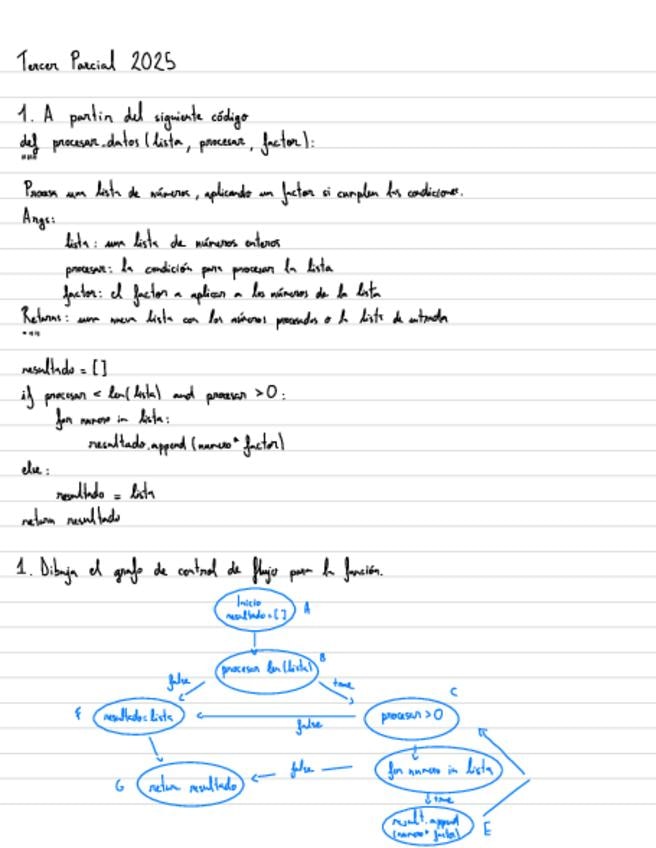 Tercer Parcial 2025
1. A partir del siguiente código
def procesar_datos (lista, procesar, factor):
"""
Procesa una lista de números, aplicando un factor si cumplen las condiciones.
Args:
lista: una lista de números enteros
procesar: la condición para procesar la lista
factor: el factor a aplicar a los números de la lista
Returns: una nueva lista con los números procesados o la lista de entrada
"""
resultado = []
if procesar < len(lista) and procesar >0:
for numero in lista:
resultado.append (numero* factor)
else:
resultado = lista
return resultado
1. Dibuja el grafo de control de flujo para la función.
Inicio
resultado=[]
A
procesar len(lista)
B
false
true
C
F
resultado=lista
false
procesar >0
G
return resultado
false
for numero in lista
true
result.append
(numero* factor)
E